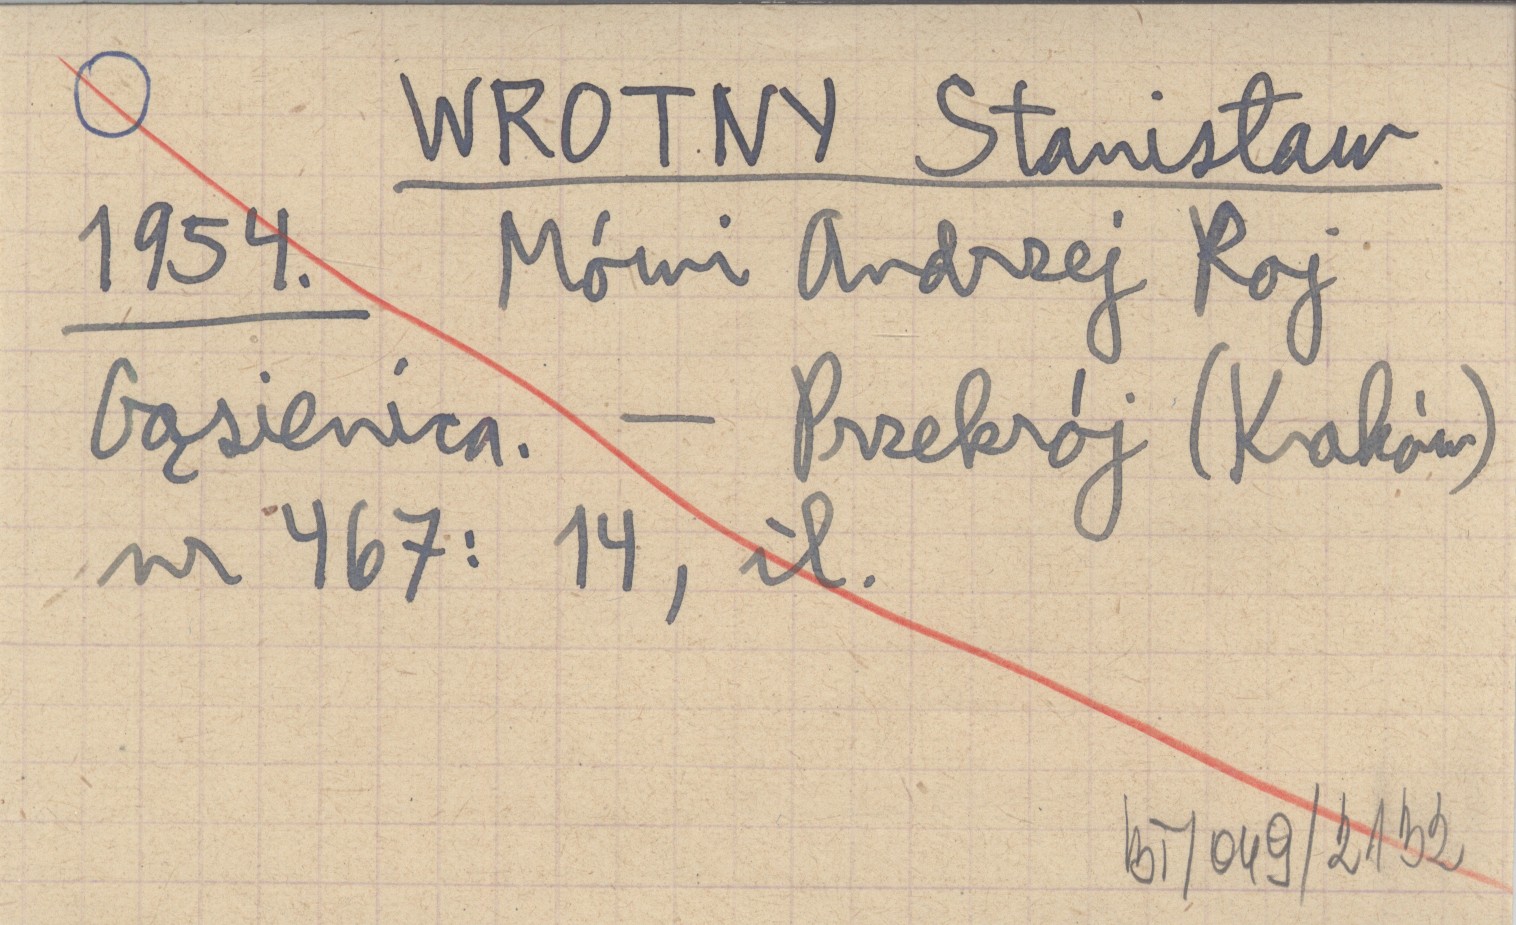 WROTNY Stanisław
1954. Mówi Andrzej Roj
Gąsienica. — Przekrój (Kraków)
nr 467: 14, il.
BT/049/2132